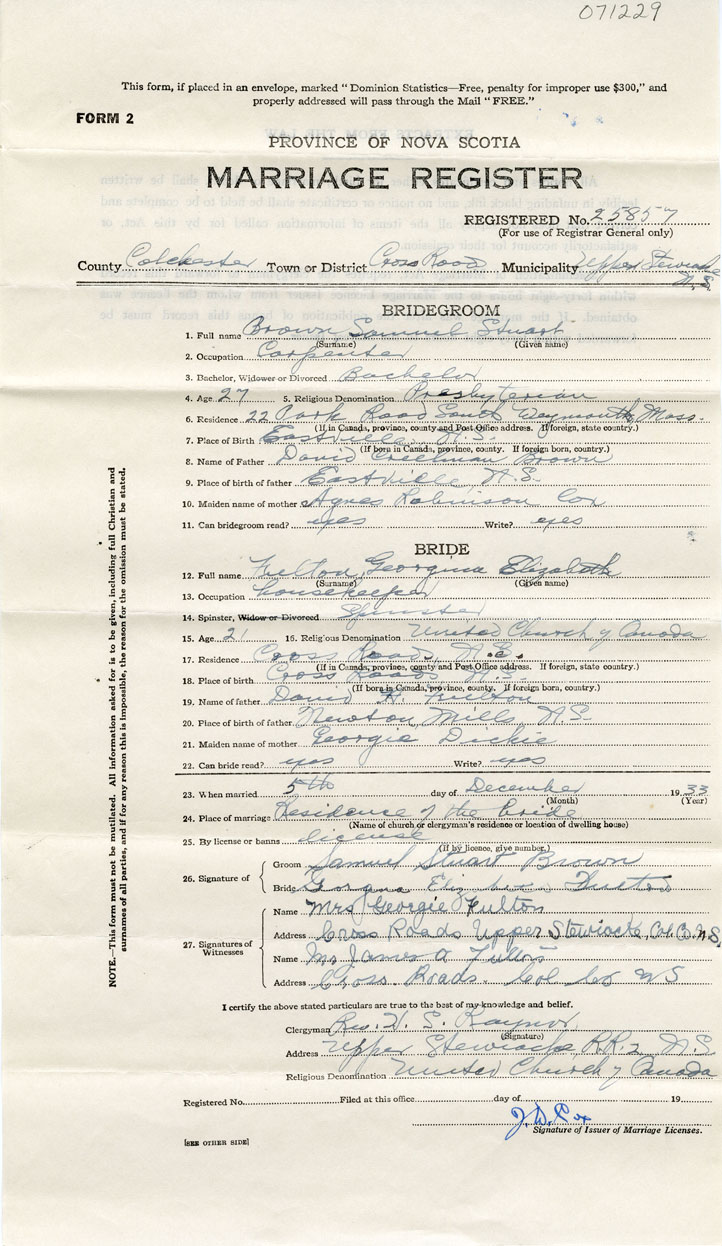 071229
This form, if placed in an envelope, marked "Dominion Statistics—Free, penalty for improper use $300," and
properly addressed will pass through the Mail "FREE."
FORM 2
PROVINCE OF NOVA SCOTIA
MARRIAGE REGISTER
REGISTERED No. 25857
(For use of Registrar General only)
County Colchester Town or District Cross Road Municipality Upper Stewiacke
N.S.
BRIDEGROOM
1. Full name Brown Samuel Stuart
(Surname) (Given name)
2. Occupation Carpenter
3. Bachelor, Widower or Divorced Bachelor
4. Age 27 5. Religious Denomination Presbyterian
6. Residence 22 Park Road South Weymouth, Mass.
(If in Canada, province, county and Post Office address. If foreign, state country.)
7. Place of Birth Eastville N.S.
(If born in Canada, province, county. If foreign born, country.)
8. Name of Father David Creelman Brown
9. Place of birth of father Eastville, N.S.
10. Maiden name of mother Agnes Robinson Cox
11. Can bridegroom read? yes Write? yes
BRIDE
12. Full name Fulton Georgina Elizabeth
(Surname) (Given name)
13. Occupation housekeeper
14. Spinster, Widow or Divorced Spinster
15. Age 21 16. Religious Denomination United Church of Canada
17. Residence Cross Roads, N.S.
(If in Canada, province, county and Post Office address. If foreign, state country.)
18. Place of birth Cross Roads N.S.
(If born in Canada, province, county. If foreign born, country.)
19. Name of father David H. Fulton
20. Place of birth of father Newton Mills, N.S.
21. Maiden name of mother Georgie Dickie
22. Can bride read? yes Write? yes
23. When married 5th day of December 1933
(Month) (Year)
24. Place of marriage Residence of the bride
(Name of church or clergyman's residence or location of dwelling house)
25. By license or banns license
(If by licence, give number.)
26. Signature of Groom Samuel Stuart Brown
Bride Georgina Elizabeth Fulton
27. Signatures of Witnesses
Name Mrs Georgie Fulton
Address Cross Roads Upper Stewiacke, Col. Co. N.S.
Name Mr James A Fulton
Address Cross Roads Col Co NS
I certify the above stated particulars are true to the best of my knowledge and belief.
Clergyman Rev. H. S. Raynor
(Signature)
Address Upper Stewiacke, R.R. 2, N.S.
Religious Denomination United Church of Canada
Registered No. Filed at this office day of 19
J. D. Cox
Signature of Issuer of Marriage Licenses.
[SEE OTHER SIDE]
NOTE.—This form must not be mutilated. All information asked for is to be given, including full Christian and
surnames of all parties, and if for any reason this is impossible, the reason for the omission must be stated.